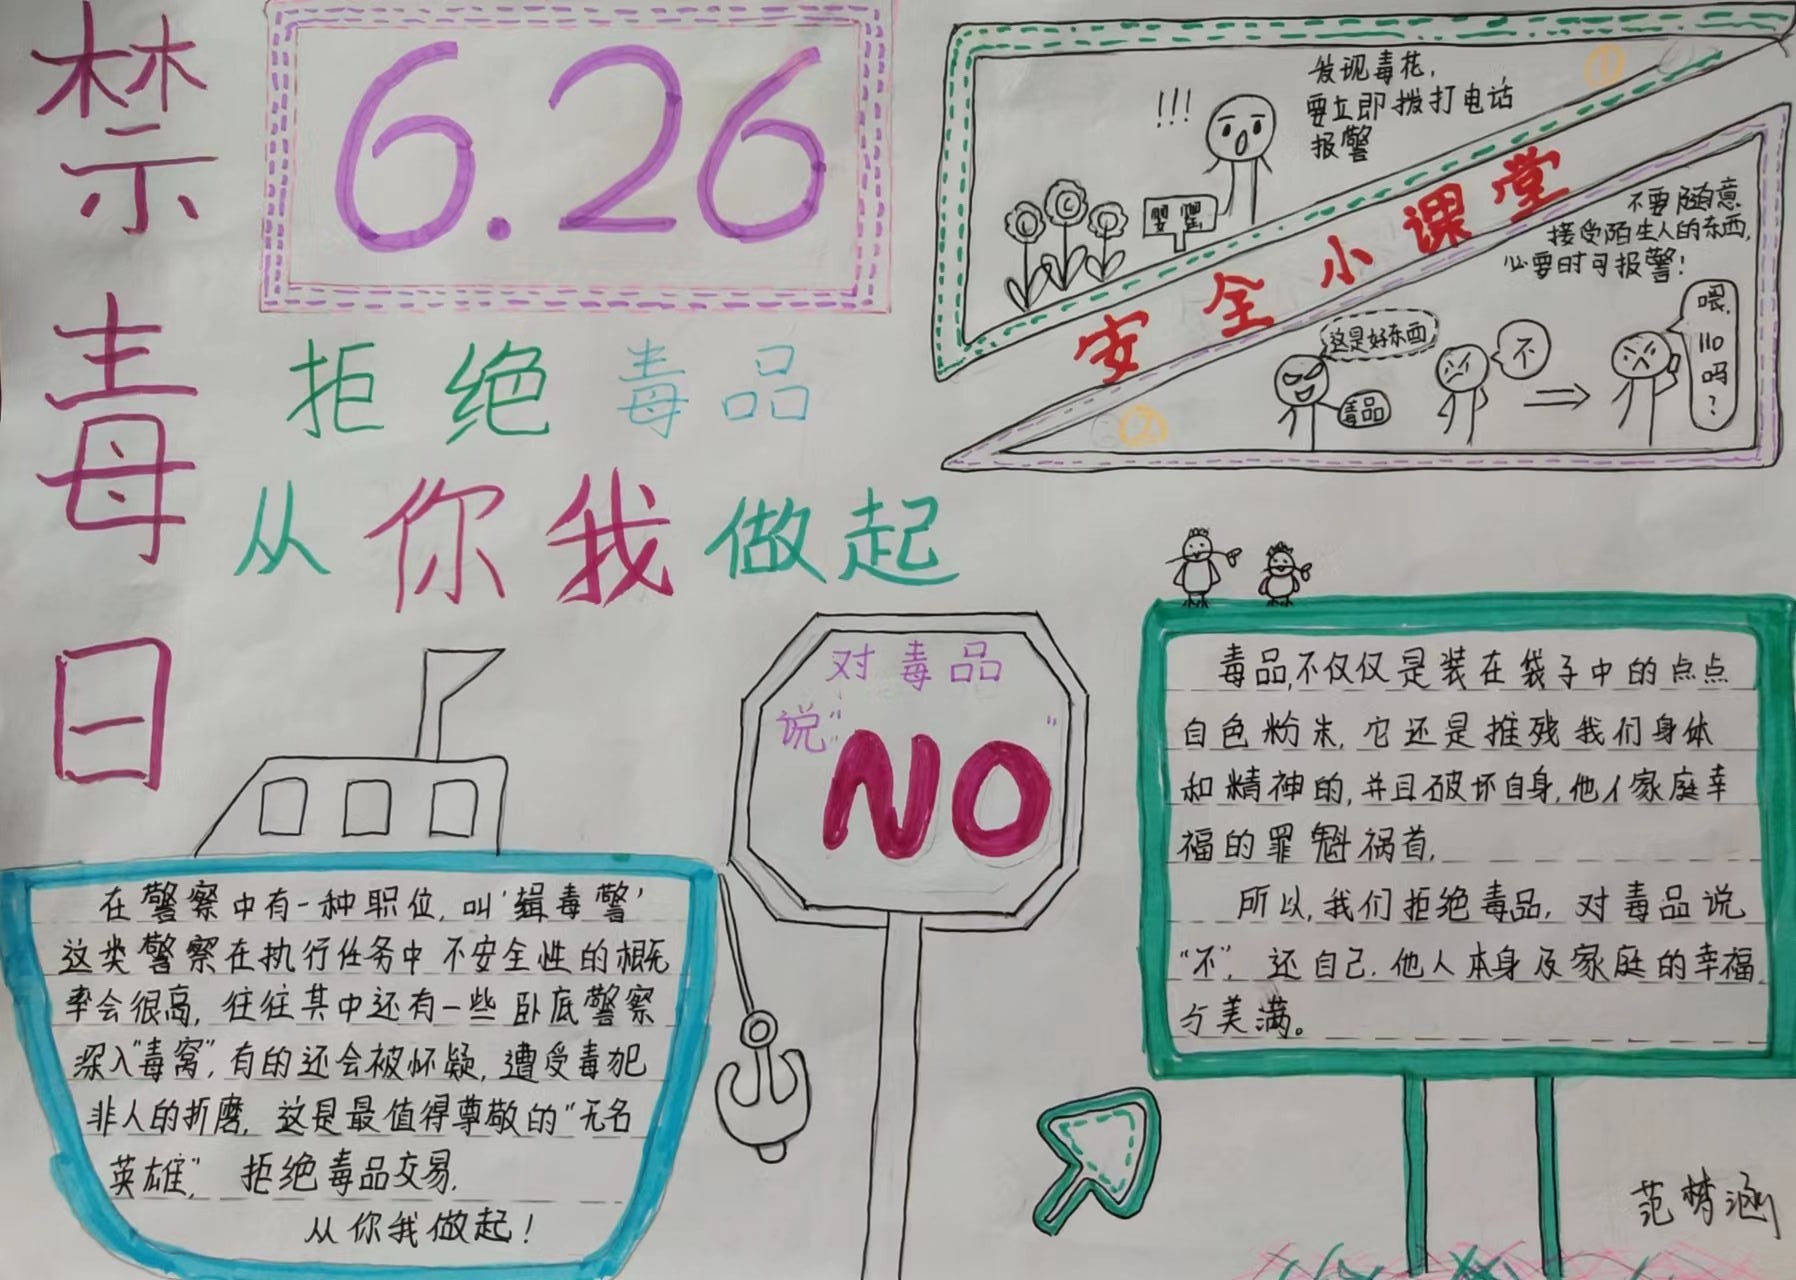 禁毒日
6.26
拒绝毒品
从你我做起
!!!
发现毒花,
要立即拨打电话
报警
罂罂
①
安全小课堂
不要随意
接受陌生人的东西,
必要时可报警!
这是好东西
毒品
不
喂,
110
吗
?
②
对毒品
说“NO”
在警察中有一种职位,叫‘缉毒警’
这类警察在执行任务中不安全性的概
率会很高,往往其中还有一些卧底警察
深入“毒窝”,有的还会被怀疑,遭受毒犯
非人的折磨,这是最值得尊敬的“无名
英雄”,拒绝毒品交易,
从你我做起!
毒品,不仅仅是装在袋子中的点点
白色粉末,它还是摧残我们身体
和精神的,并且破坏自身,他人家庭幸
福的罪魁祸首,
所以,我们拒绝毒品,对毒品说
“不”,还自己,他人本身及家庭的幸福
与美满。
范梦涵